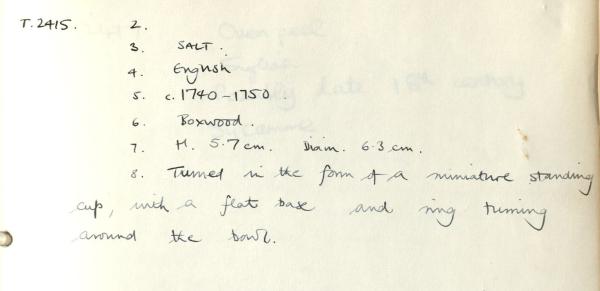 T.2415. 2.
3. SALT.
4. English
5. c. 1740-1750.
6. Boxwood.
7. H. 5.7 cm. Diam. 6.3 cm.
8. Turned in the form of a miniature standing
cup, with a flat base and ring turning
around the bowl.